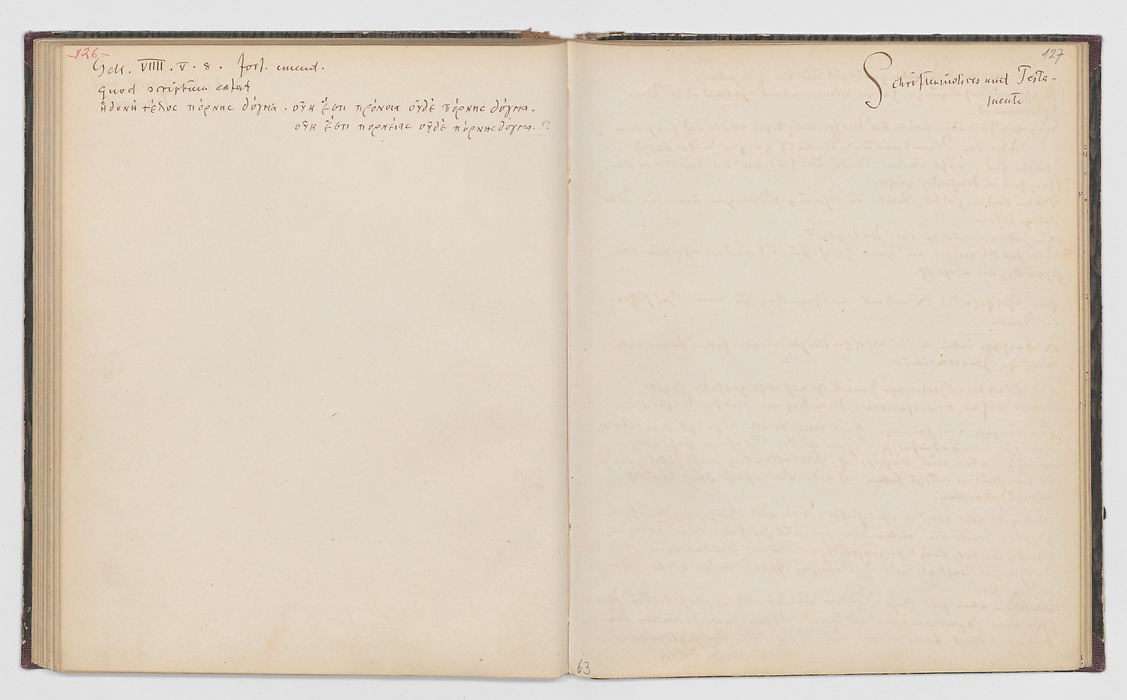 126
Gell. VIIII. V. 8. fort. emend.
quod scriptum extat
ἡδονὴ τέλος πόρνης δόγμα. οὐκ ἔστι πρόνοια οὐδὲ πόρνης δόγμα.
οὐκ ἔστι πορνείας οὐδὲ πόρνης δόγμα. ?
127
Schriftensinolives und Testa-
mente
63